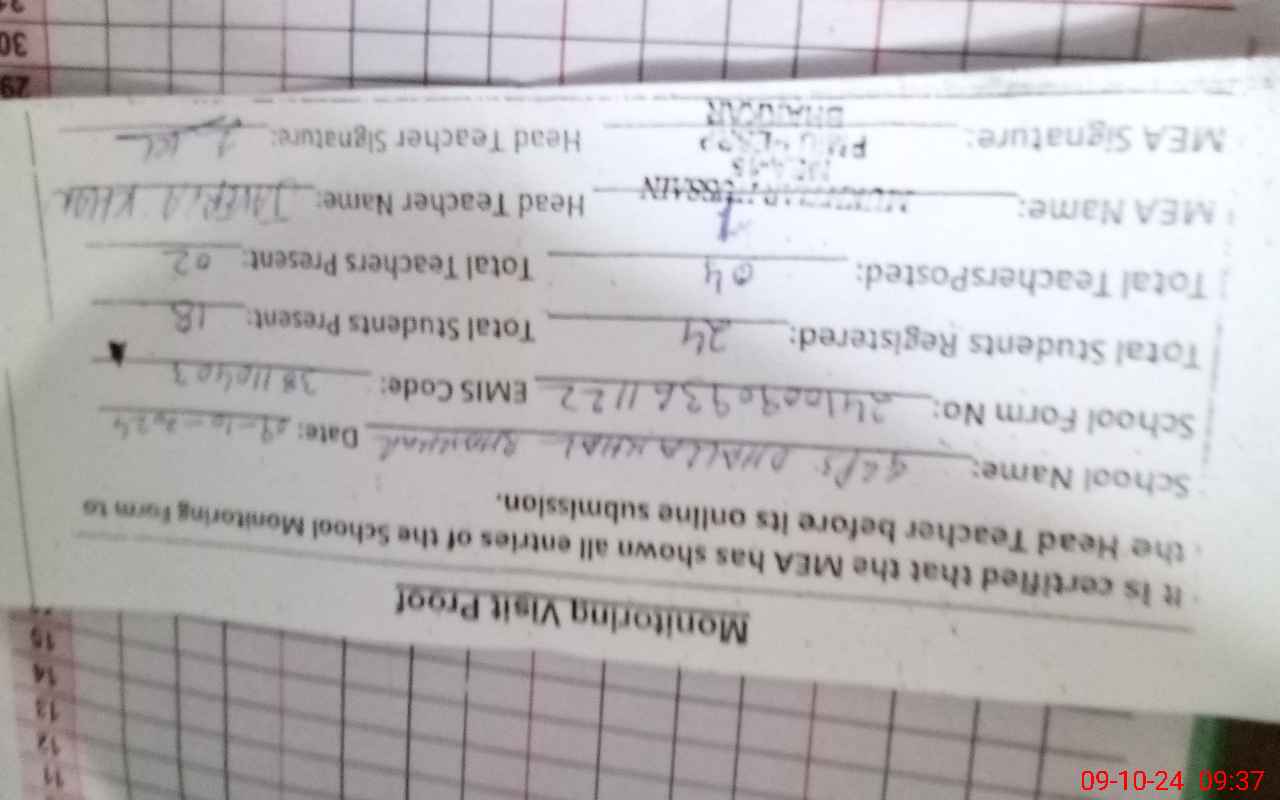 Monitoring Visit Proof
It is certified that the MEA has shown all entries of the School Monitoring Form to
the Head Teacher before its online submission.
School Name: GGPS Date: 09-10-2024
School Form No: EMIS Code: 38110403
Total Students Registered: 24 Total Students Present: 18
Total TeachersPosted: 04 Total Teachers Present: 02
MEA Name: HUSSAIN Head Teacher Name: JAVERIA KHAN
MEA Signature: BHAKKAR Head Teacher Signature:
29
30
11
12
13
14
15
09-10-24 09:37